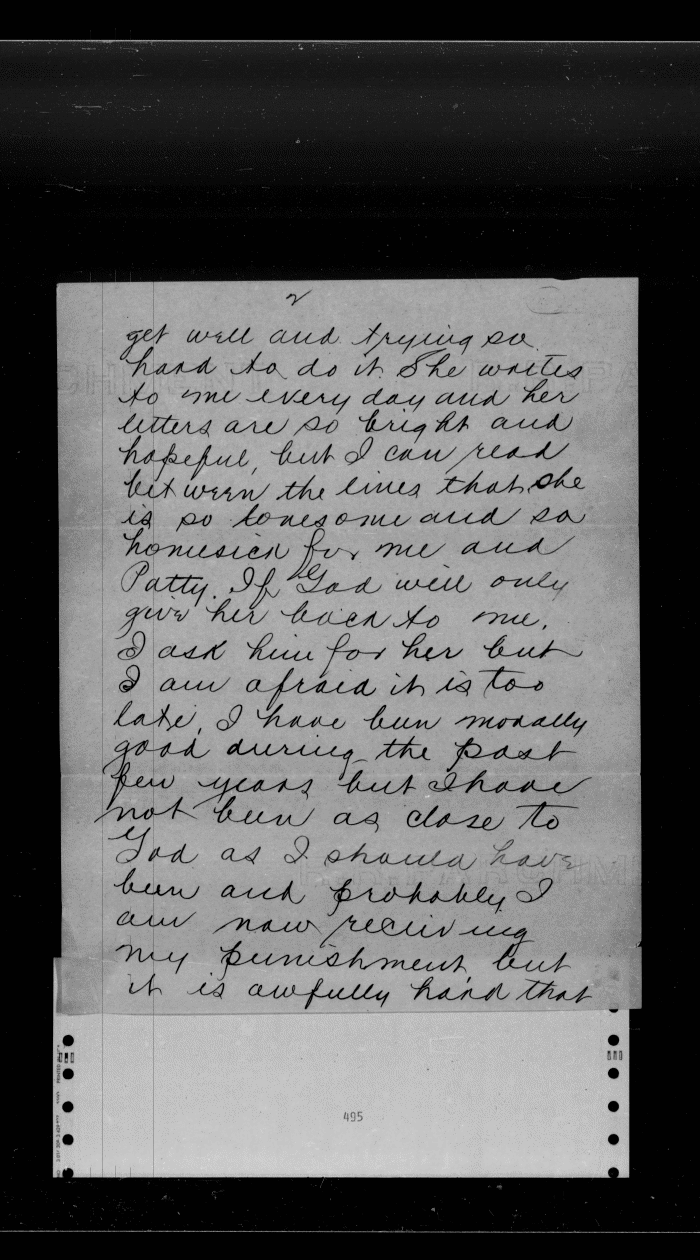 2
get well and trying so
hard to do it. She writes
to me every day and her
letters are so bright and
hopeful, but I can read
between the lines that she
is so lonesome and so
homesick for me and
Patty. If God will only
give her back to me.
I ask him for her but
I am afraid it is too
late. I have been morally
good during the past
few years but I have
not been as close to
God as I should have
been and probably I
am now receiving
my punishment, but
it is awfully hard that
495